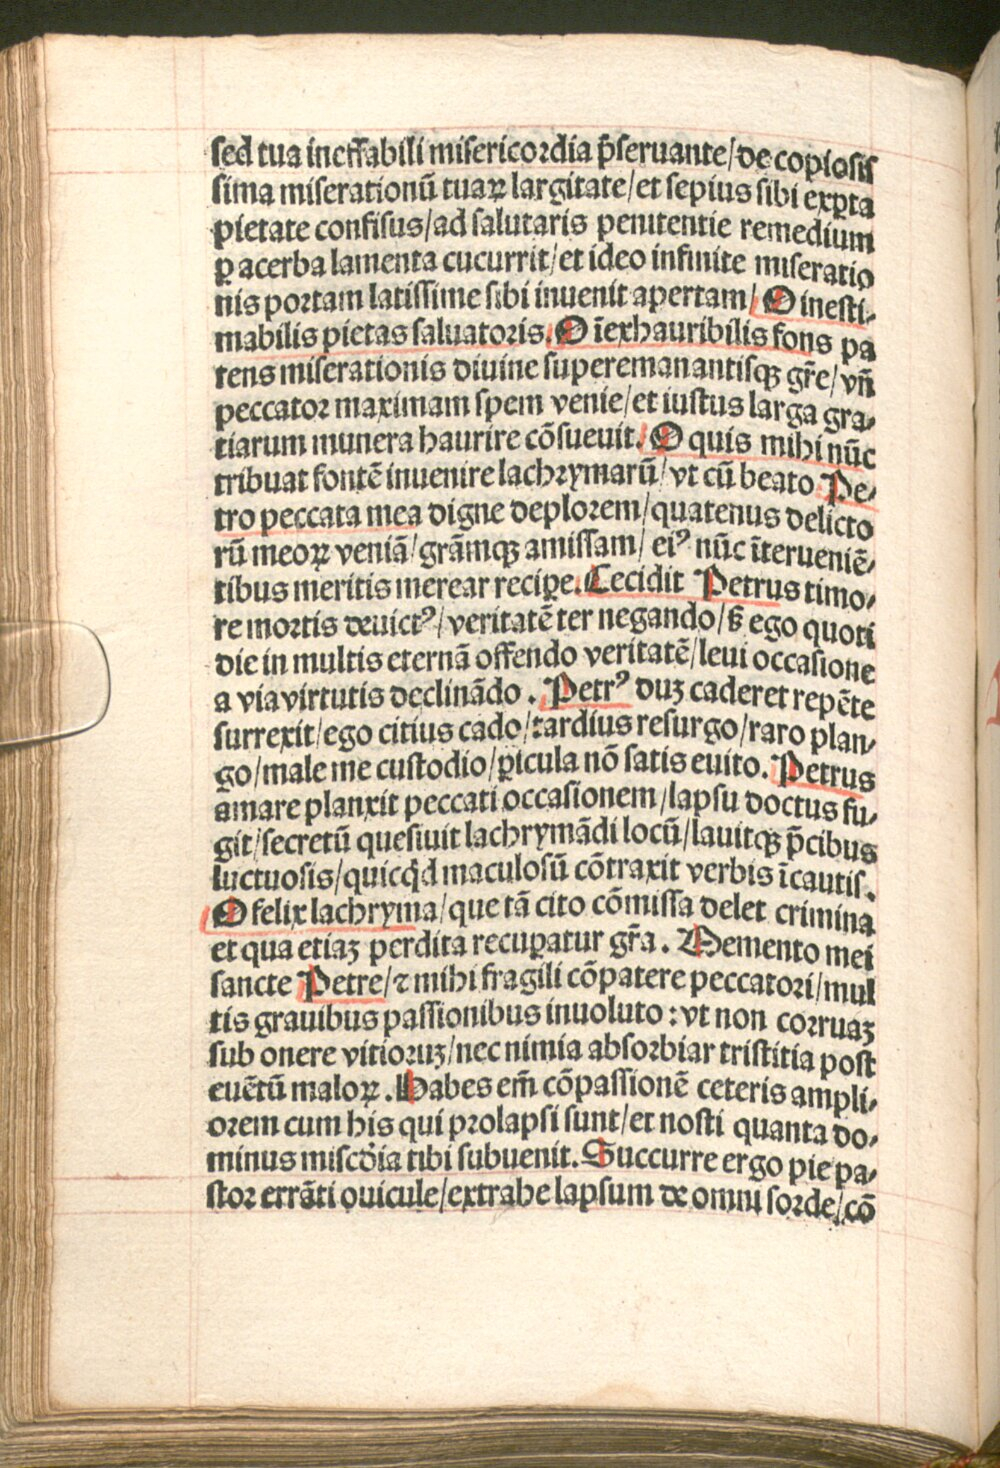 sed tua ineffabili misericordia p̄seruante/de copiosis
sima miserationū tuaꝝ largitate/et sepius sibi exꝑta
pietate confisus/ad salutaris penitentie remedium
ꝑ acerba lamenta cucurrit/et ideo infinite miseratio
nis portam latissime sibi inuenit apertam/ O inesti-
mabilis pietas saluatoris. O īexhauribilis fons pa
tens miserationis diuine superemanantisqꝫ gr̄e/vn̄
peccator maximam spem venie/et iustus larga gra-
tiarum munera haurire cōsueuit. O quis mihi nūc
tribuat fontē inuenire lachrymarū/vt cū beato Pe-
tro peccata mea digne deplorem/quatenus delicto
rū meoꝝ veniā/grāmqꝫ amissam/eiꝰ nūc īterueniē-
tibus meritis merear reciꝑe. Cecidit Petrus timo-
re mortis deuictꝰ/veritatē ter negando/ꞩ ego quoti
die in multis eternā offendo veritatē/leui occasione
a via virtutis declinādo. Petrꝰ duꝫ caderet repēte
surrexit/ego citius cado/tardius resurgo/raro plan-
go/male me custodio/ꝑicula nō satis euito. Petrus
amare planxit peccati occasionem/lapsu doctus fu-
git/secretū quesiuit lachrymādi locū/lauitqꝫ p̄cibus
luctuosis/quicq̇d maculosū cōtraxit verbis īcautis.
O felix lachryma/que tā cito cōmissa delet crimina
et qua etiaꝫ perdita recuꝑatur gr̄a. Memento mei
sancte Petre/⁊ mihi fragili cōpatere peccatori/mul
tis grauibus passionibus inuoluto: vt non corruaꝫ
sub onere vitioruꝫ/nec nimia absorbiar tristitia post
euētū maloꝝ. Habes em̄ cōpassionē ceteris ampli-
orem cum his qui prolapsi sunt/et nosti quanta do-
minus miscōia tibi subuenit. Succurre ergo pie pa-
stor errāti ouicule/extrabe lapsum de omni sorde/cō